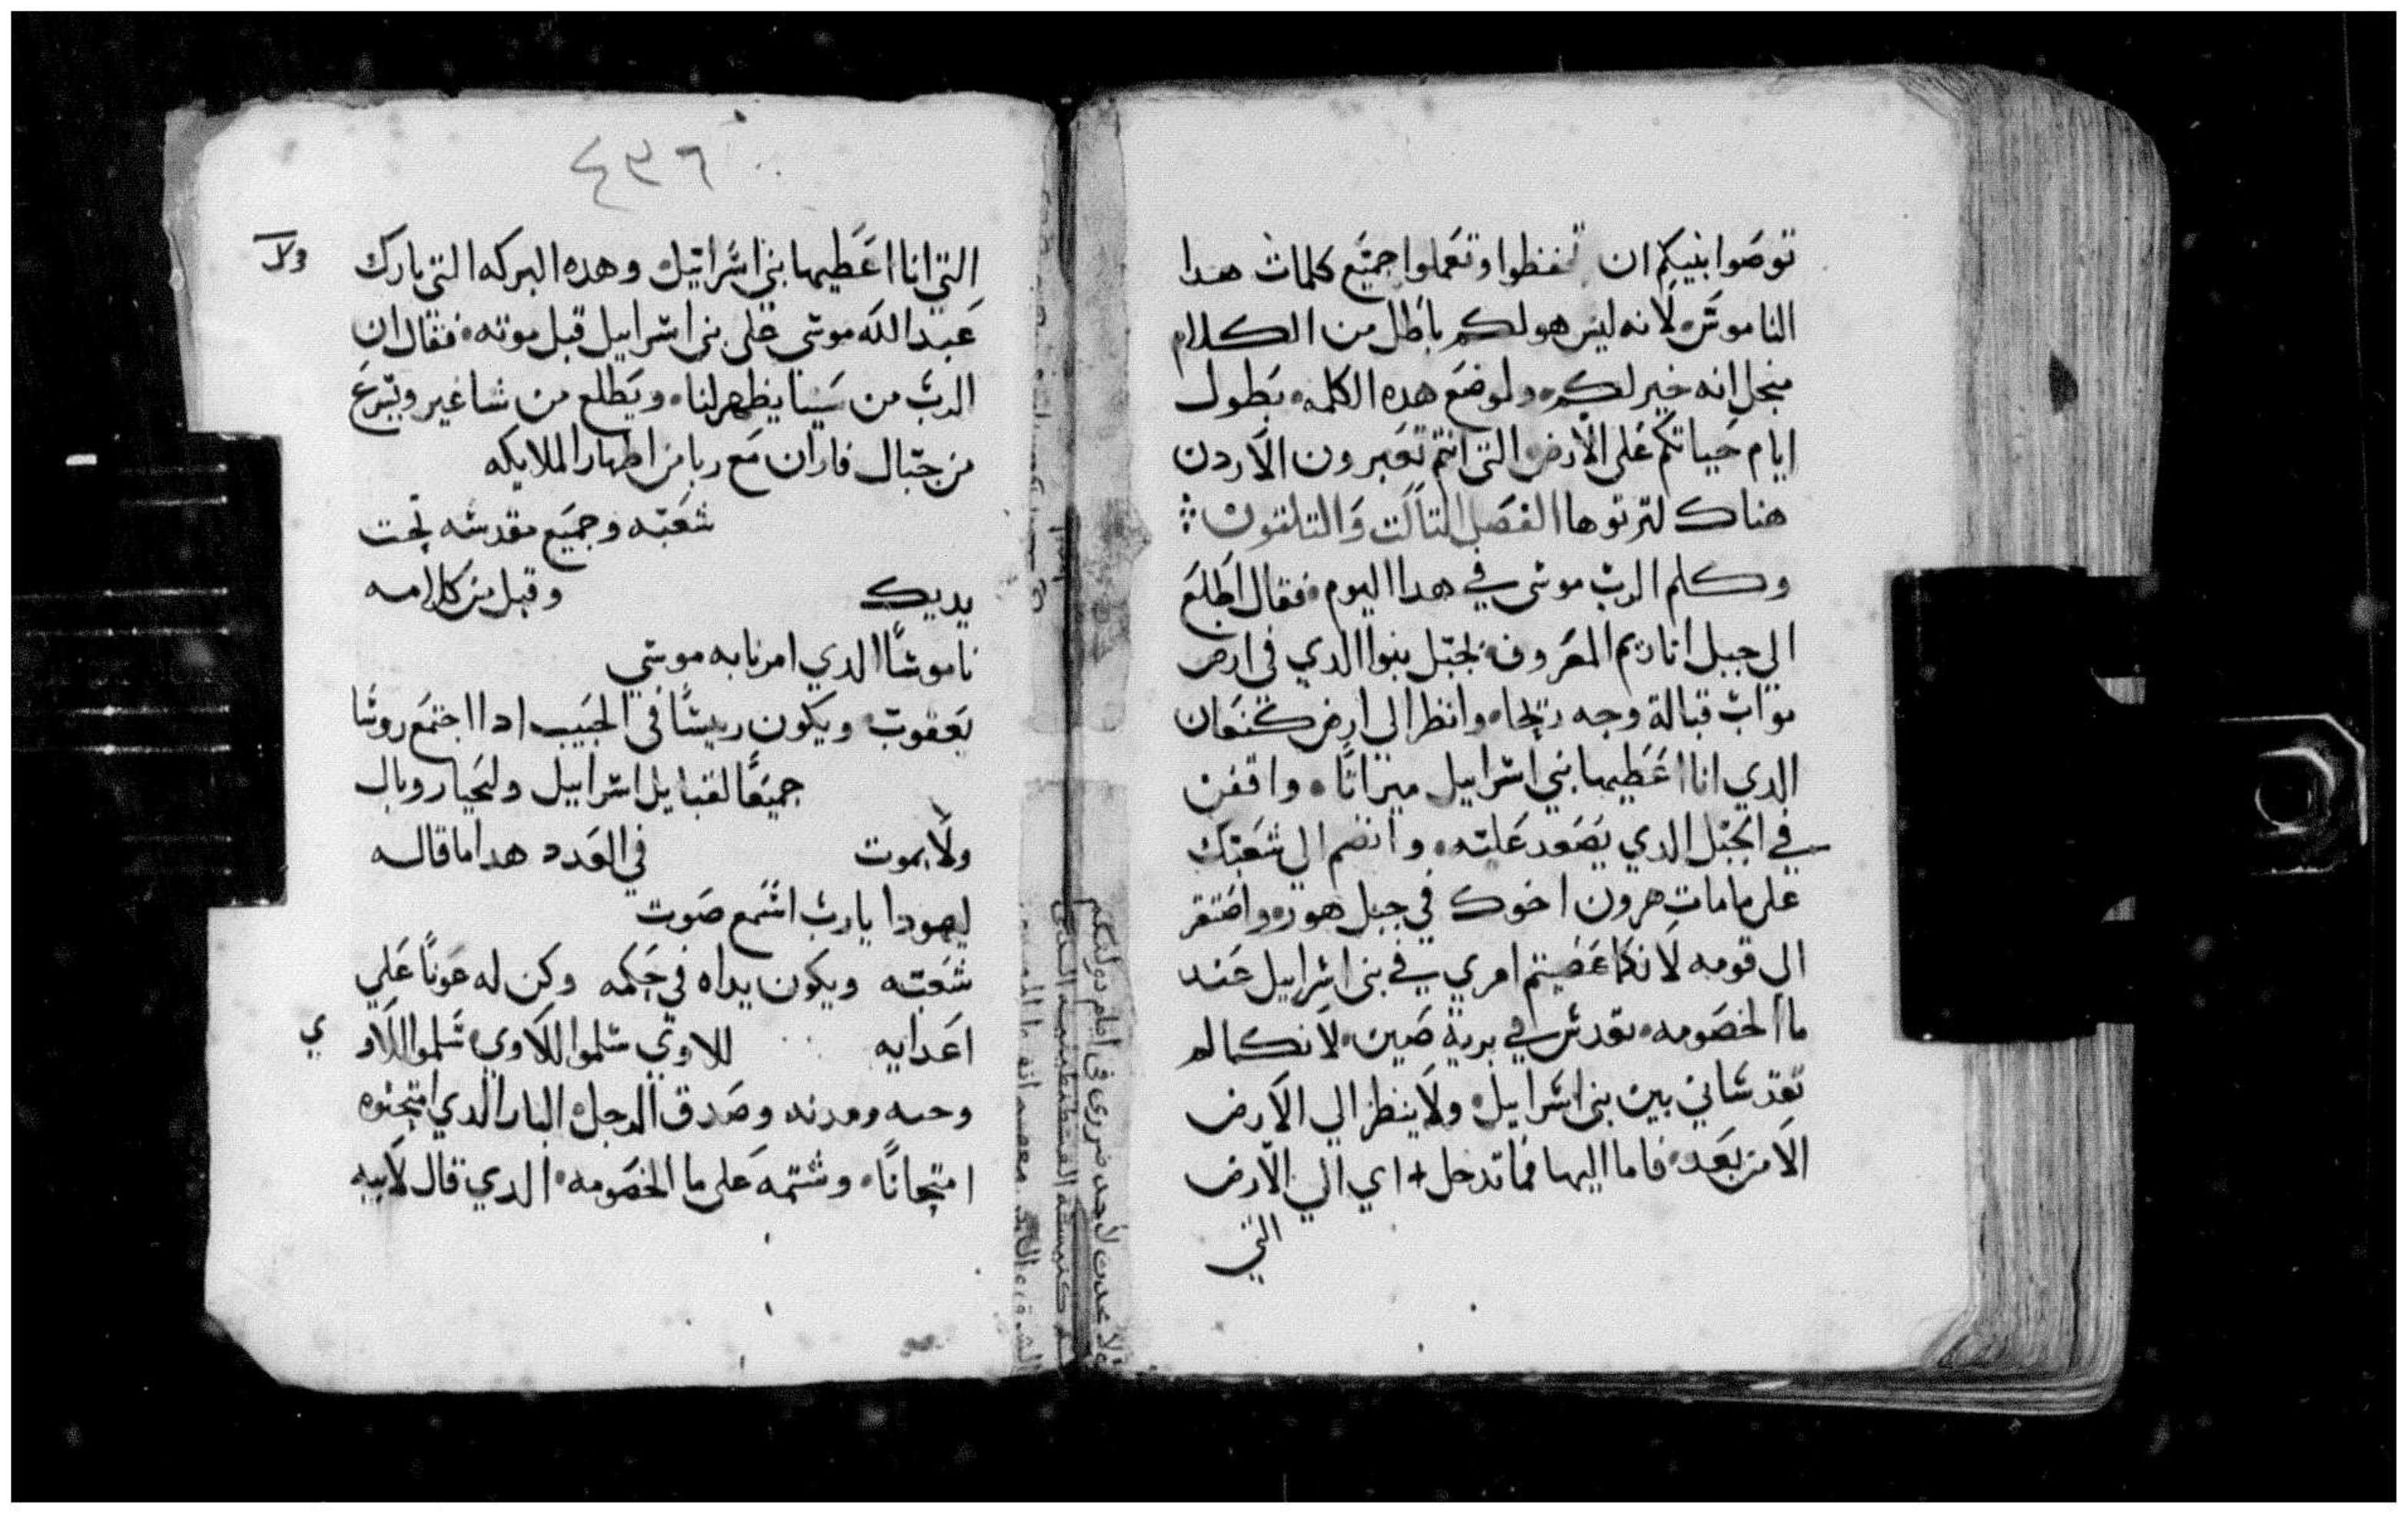 توصوا بنيكم ان تحفظوا وتعملوا جميع كلمات هدا
الناموس لانه ليس هو لكم باطل من الكلام
منجل انه خير لكم ولموضع هده الكلمه بطول
ايام حياتكم على الارض التى انتم تعبرون الاردن
هناك لترتوها الفصل التالت والتلتون
وكلم الرب موسى في هدا اليوم فقال اطلع
الى جبل اناريم المعروف بجبل بنوا الدي في ارض
مواب قبالة وجه ريحا وانظر الى ارض كنعان
الدي انا اعطيها بني اسرابيل ميراتا واقفن
في الجبل الدي يصعد عليه وانضم الى شعبك
على ما مات هرون اخوك في جبل هور واضتقر
الى قومه لانكما عصيتم امري في بنى اسرابيل عند
ما الخصومه بقدس في برية صين لانكما لم
تقدسانى بين بنى اسرابيل ولا ينظر الى الارض
الا من بعد فاما اليها فما تدخل اي الى الارض
التي
٤٣٦
التي انا اعطيها بني اسراييل وهده البركه التي بارك
عبد الله موسى على بنى اسرابيل قبل موته فقال ان
الرب من سينا يظهر لنا ويطلع من ساغير ويسرع
من جبال فاران مع ربا من اطهار الملايكه
شعبه وجميع مقدسه تحت
يديك وقبل من كلامه
ناموسا الدي امرنا به موسي
يعقوب ويكون رييسا في الحبيب ادا اجتمع روسا
جميعا لقبايل اسرابيل وليحيا روبال
ولا يموت في العدد هدا ما قاله
ليهودا يارب اسمع صوت
شعبه ويكون يداه في حكمه وكن له عونا على
اعدايه للاوي سلموا اللاوي سلموا اللاو
ي
وصدق الرجل البار الدي امتحنوه
امتحانا وشتمه على ما الخصومه الدي قال لابيه